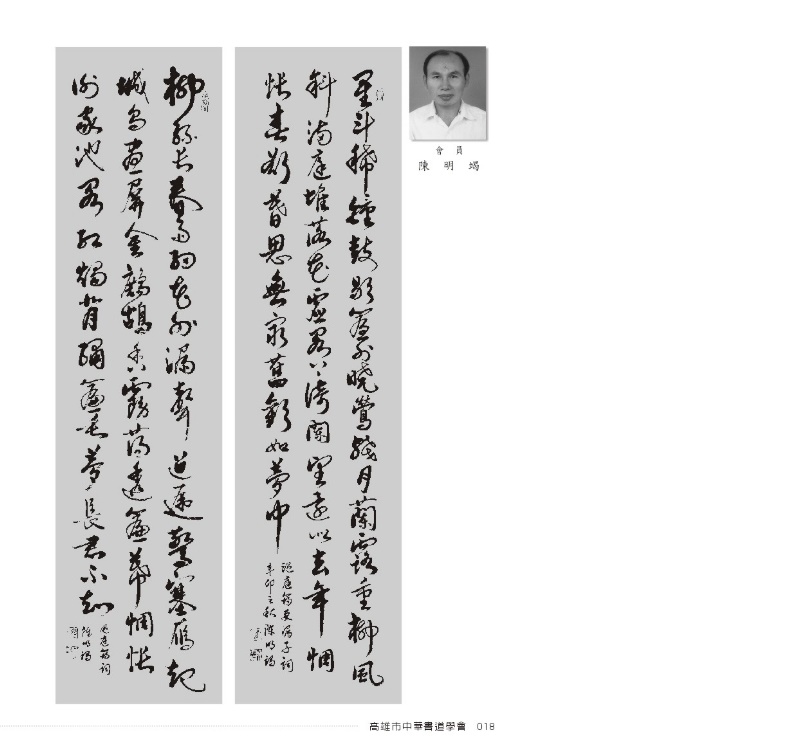 會員
陳明竭
星斗稀鐘鼓歇簾外曉鶯殘月蘭露重柳風
斜滿庭堆落花虛閣上倚闌望還似去年惆
悵春欲暮思無窮舊歡如夢中
溫庭筠更漏子詞
辛卯之秋陳明竭
柳絲長春雨細花外漏聲迢遞驚塞雁起
城烏畫屏金鷓鴣香霧薄透簾幕惆悵
謝家池閣紅燭背繡簾垂夢長君不知
溫庭筠詞
陳明竭
高雄市中華書道學會 018